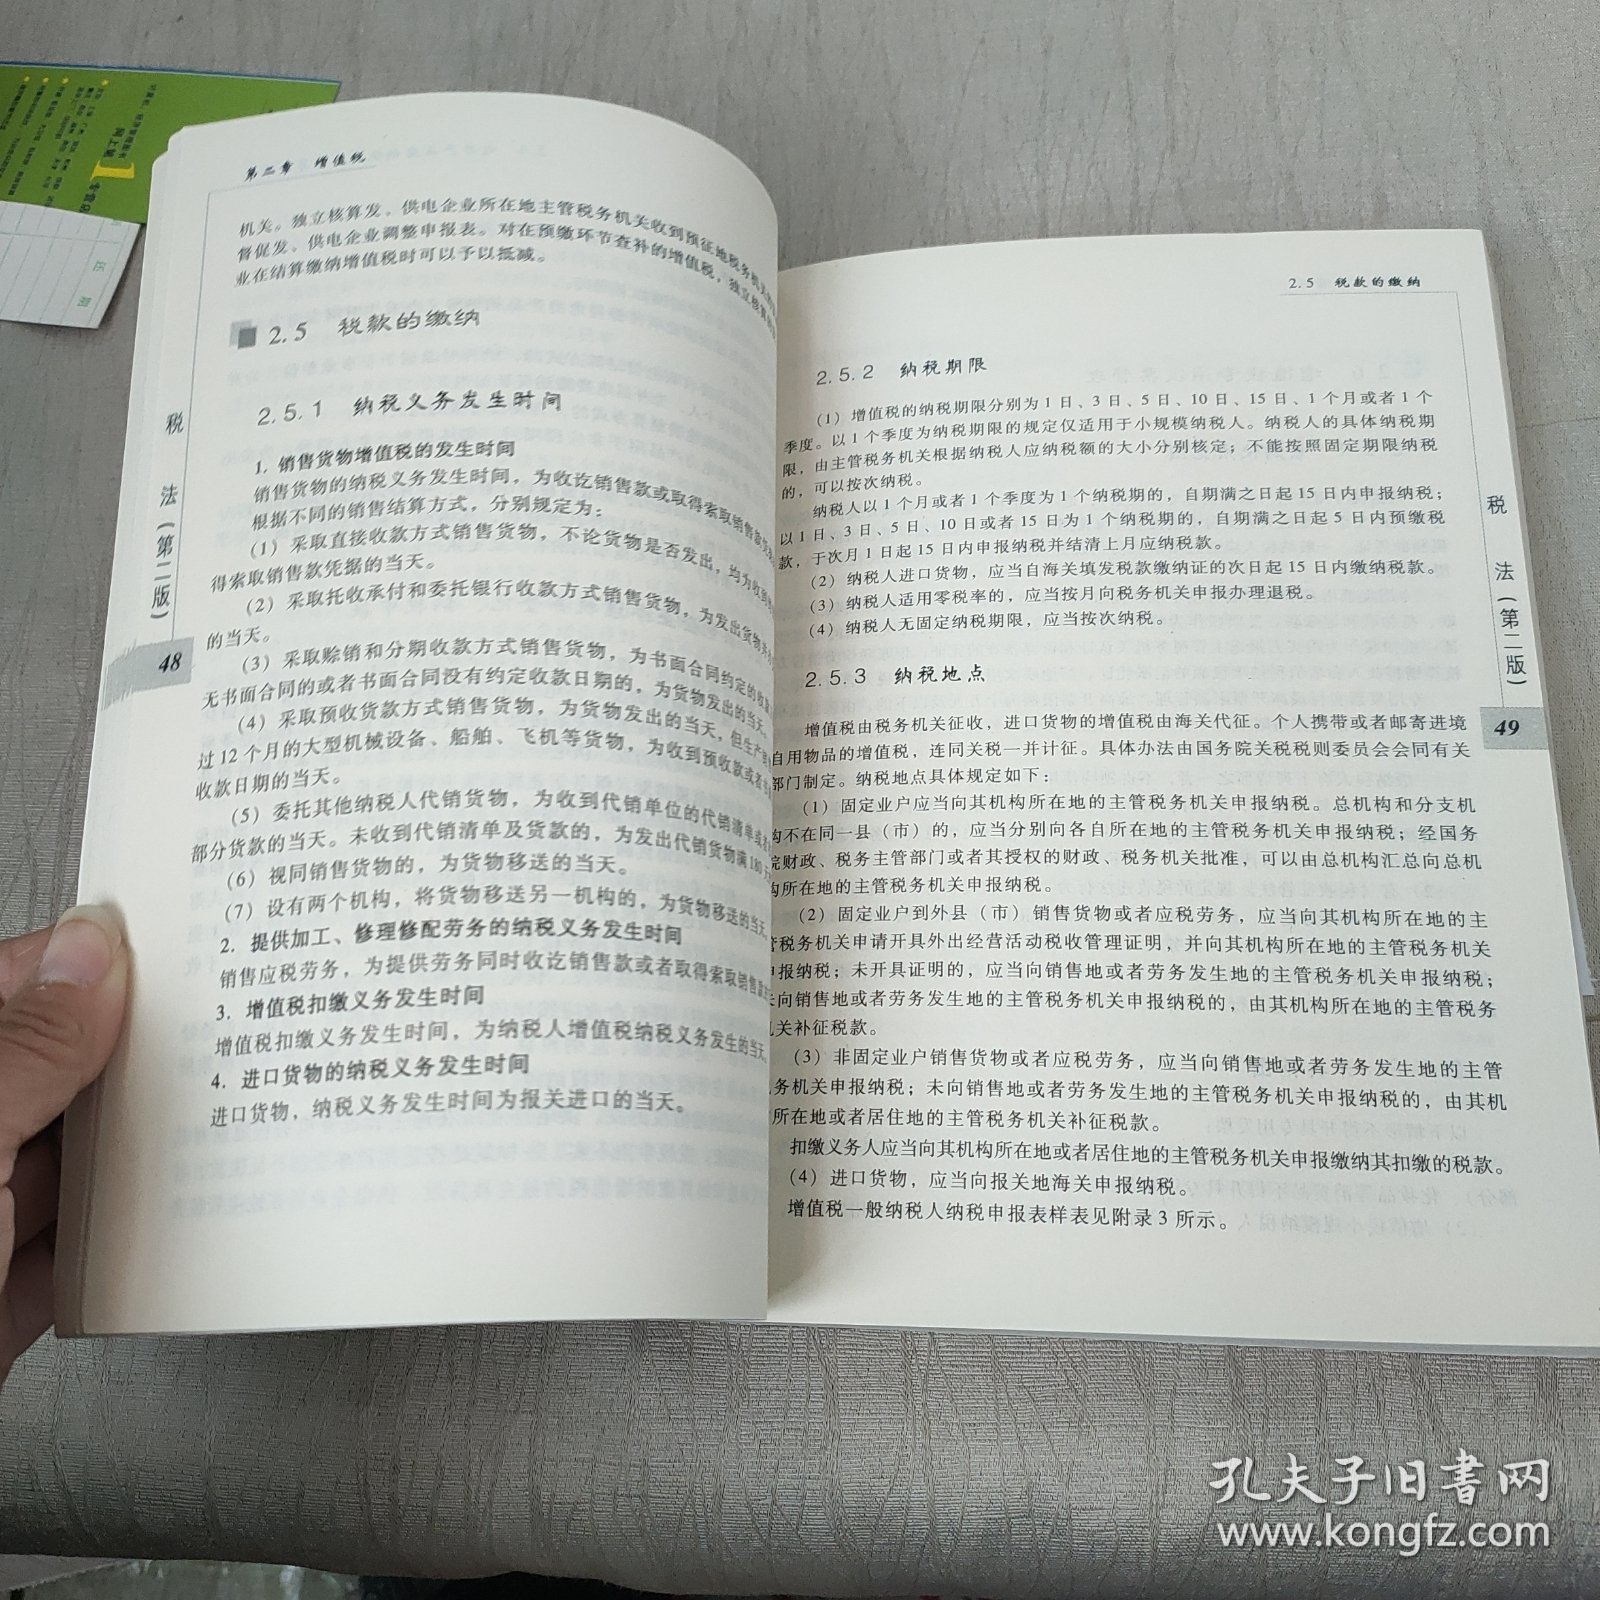 第二章 增值税
机关。独立核算发、供电企业所在地主管税务机关收到预征地税务机关
督促发、供电企业调整申报表。对在预缴环节查补的增值税，独立核算
业在结算缴纳增值税时可以予以抵减。
2.5 税款的缴纳
2.5.1 纳税义务发生时间
1. 销售货物增值税的发生时间
销售货物的纳税义务发生时间，为收讫销售款或取得索取销售款凭
根据不同的销售结算方式，分别规定为：
（1）采取直接收款方式销售货物，不论货物是否发出，均为收到
得索取销售款凭据的当天。
（2）采取托收承付和委托银行收款方式销售货物，为发出货物并
的当天。
（3）采取赊销和分期收款方式销售货物，为书面合同约定的收
无书面合同的或者书面合同没有约定收款日期的，为货物发出的当天。
（4）采取预收货款方式销售货物，为货物发出的当天，但生产
过 12 个月的大型机械设备、船舶、飞机等货物，为收到预收款或者书
收款日期的当天。
（5）委托其他纳税人代销货物，为收到代销单位的代销清单或者
部分货款的当天。未收到代销清单及货款的，为发出代销货物满 180 天
（6）视同销售货物的，为货物移送的当天。
（7）设有两个机构，将货物移送另一机构的，为货物移送的当天。
2. 提供加工、修理修配劳务的纳税义务发生时间
销售应税劳务，为提供劳务同时收讫销售款或者取得索取销售款
3. 增值税扣缴义务发生时间
增值税扣缴义务发生时间，为纳税人增值税纳税义务发生的当天。
4. 进口货物的纳税义务发生时间
进口货物，纳税义务发生时间为报关进口的当天。
税法（第二版）
48
2.5 税款的缴纳
2.5.2 纳税期限
（1）增值税的纳税期限分别为 1 日、3 日、5 日、10 日、15 日、1 个月或者 1 个
季度。以 1 个季度为纳税期限的规定仅适用于小规模纳税人。纳税人的具体纳税期
限，由主管税务机关根据纳税人应纳税额的大小分别核定；不能按照固定期限纳税
的，可以按次纳税。
纳税人以 1 个月或者 1 个季度为 1 个纳税期的，自期满之日起 15 日内申报纳税；
以 1 日、3 日、5 日、10 日或者 15 日为 1 个纳税期的，自期满之日起 5 日内预缴税
款，于次月 1 日起 15 日内申报纳税并结清上月应纳税款。
（2）纳税人进口货物，应当自海关填发税款缴纳证的次日起 15 日内缴纳税款。
（3）纳税人适用零税率的，应当按月向税务机关申报办理退税。
（4）纳税人无固定纳税期限，应当按次纳税。
2.5.3 纳税地点
增值税由税务机关征收，进口货物的增值税由海关代征。个人携带或者邮寄进境
自用物品的增值税，连同关税一并计征。具体办法由国务院关税税则委员会会同有关
部门制定。纳税地点具体规定如下：
（1）固定业户应当向其机构所在地的主管税务机关申报纳税。总机构和分支机
构不在同一县（市）的，应当分别向各自所在地的主管税务机关申报纳税；经国务
院财政、税务主管部门或者其授权的财政、税务机关批准，可以由总机构汇总向总机
构所在地的主管税务机关申报纳税。
（2）固定业户到外县（市）销售货物或者应税劳务，应当向其机构所在地的主
管税务机关申请开具外出经营活动税收管理证明，并向其机构所在地的主管税务机关
申报纳税；未开具证明的，应当向销售地或者劳务发生地的主管税务机关申报纳税；
未向销售地或者劳务发生地的主管税务机关申报纳税的，由其机构所在地的主管税务
机关补征税款。
（3）非固定业户销售货物或者应税劳务，应当向销售地或者劳务发生地的主管
税务机关申报纳税；未向销售地或者劳务发生地的主管税务机关申报纳税的，由其机
构所在地或者居住地的主管税务机关补征税款。
扣缴义务人应当向其机构所在地或者居住地的主管税务机关申报缴纳其扣缴的税款。
（4）进口货物，应当向报关地海关申报纳税。
增值税一般纳税人纳税申报表样表见附录 3 所示。
税法（第二版）
49
孔夫子旧书网
www.kongfz.com